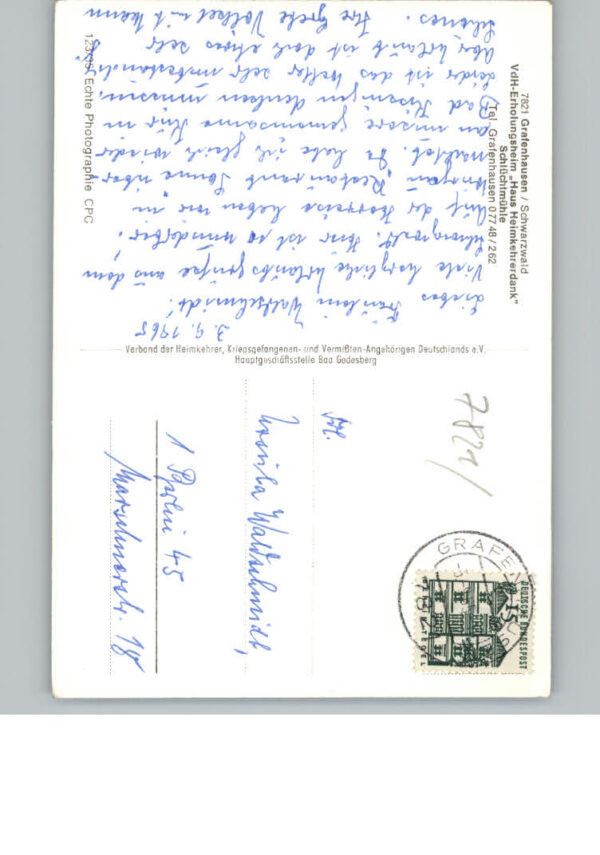 7821 Grafenhausen / Schwarzwald
VdH-Erholungsheim „Haus Heimkehrerdank"
Schlüchtmühle
Tel. Grafenhausen 07748/262
3.9.1965
Liebes Fräulein Waldschmidt!
Viele herzliche Urlaubsgrüße aus dem
Schwarzwald. Hier ist es wunderbar!
Auf der Herreise haben wir in
Restaurant Sonne über-
nachtet. Da habe ich gleich wieder
an unsere gemeinsame Kur in
Bad Kissingen denken müssen.
Leider ist das Wetter sehr unbeständig
Aber Urlaub ist doch etwas sehr
Schönes. Ihre Grete Völkel mit Mann
Echte Photographie CPC
Verband der Heimkehrer, Kriegsgefangenen- und Vermißten-Angehörigen Deutschlands e.V.
Hauptgeschäftsstelle Bad Godesberg
7821/
Frl.
Ursula Waldschmidt,
1 Berlin 45
Marschnerstr. 18
DEUTSCHE BUNDESPOST
15
TEGEL